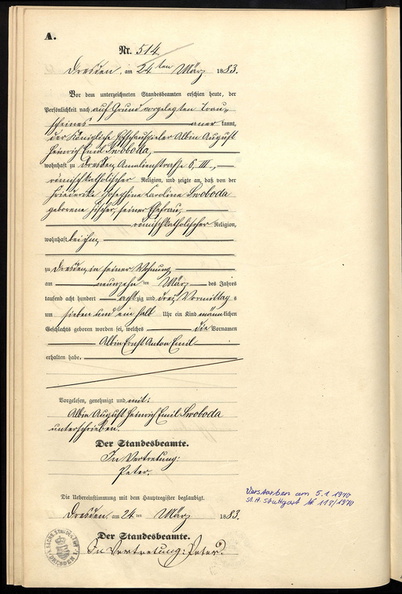 A.
Nr. 514
Dresden, am 24ten März 1883.
Vor dem unterzeichneten Standesbeamten erschien heute, der
Persönlichkeit nach auf Grund vorgelegten Trau-
scheines anerkannt,
der Königliche Hofschauspieler Albin August
Heinrich Emil Swoboda,
wohnhaft zu Dresden, Amalienstrasse 6, III.,
römisch katholischer Religion, und zeigte an, daß von der
Friederike Josephine Carolina Swoboda
geborene Fischer, seiner Ehefrau,
römisch katholischer Religion,
wohnhaft bei ihm,
zu Dresden, in seiner Wohnung
am neunzehnten März des Jahres
tausend acht hundert achtzig und drei, Vormittags
um sieben und ein halb Uhr ein Kind männlichen
Geschlechts geboren worden sei, welches die Vornamen
Albin Ernst Anton Emil
erhalten habe.
Vorgelesen, genehmigt und mit:
Albin August Heinrich Emil Swoboda
unterschrieben.
Der Standesbeamte.
In Vertretung:
Peter.
Die Uebereinstimmung mit dem Hauptregister beglaubigt.
Dresden, am 24. März 1883.
Der Standesbeamte.
In Vertretung: Peter.
Verstorben am 5.1.1970
St.A. Stuttgart